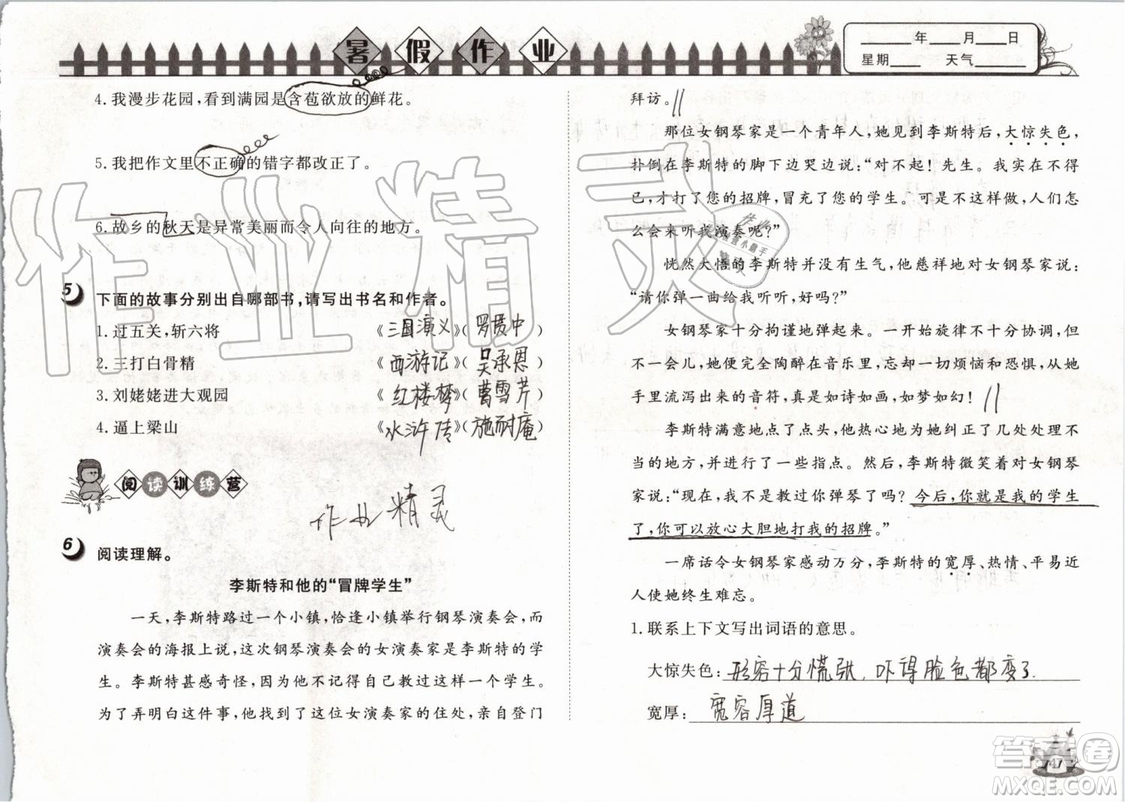 暑假作业
4.我漫步花园,看到满园是含苞欲放的鲜花。
5.我把作文里不正确的错字都改正了。
6.故乡的秋天是异常美丽而令人向往的地方。
5 下面的故事分别出自哪部书,请写出书名和作者。
1.过五关,斩六将 《三国演义》(罗贯中)
2.三打白骨精 《西游记》(吴承恩)
3.刘姥姥进大观园 《红楼梦》(曹雪芹)
4.逼上梁山 《水浒传》(施耐庵)
阅读训练营
作业精灵
6 阅读理解。
李斯特和他的“冒牌学生”
一天,李斯特路过一个小镇,恰逢小镇举行钢琴演奏会,
演奏会的海报上说,这次钢琴演奏会的女演奏家是李斯特的学
生。李斯特甚感奇怪,因为他不记得自己有过这样一个学生。
为了弄明白这件事,他找到了这位女演奏家的住处,亲自登门
____年___月___日
星期___ 天气___
拜访。
那位女钢琴家是一个青年人,她见到李斯特,大惊失色,
扑倒在李斯特的脚下边哭边说:“对不起!先生。我实在不得
已,才打了您的招牌,冒充了您的学生。可是不这样做,人们
怎么会来听我演奏呢?”
恍然大悟的李斯特并没有生气,他慈祥地对女钢琴家说:
“请你弹一曲给我听听,好吗?”
女钢琴家十分拘谨地弹起来。一开始旋律不十分协调,但
不久,她便完全陶醉在音乐里,忘却一切烦恼和恐惧,从她
手里流泻出来的音符,真是如诗如画,如梦如幻!
李斯特满意地点了点头,他热心地为她纠正了几处处理不
当的地方,并进行了一些指点。然后,李斯特微笑着对女钢琴
家说:“现在,我不是可以教你弹琴了吗?今后,你就是我的学生
了,你可以放心大胆地打我的招牌。”
一席话令女钢琴家感动万分,李斯特的宽厚、热情、平易近
人使她终生难忘。
1.联系上下文写出词语的意思。
大惊失色:形容十分慌张,吓得脸色都变了
宽厚:宽容厚道
41
作业精灵
答案圈
MXQE.COM